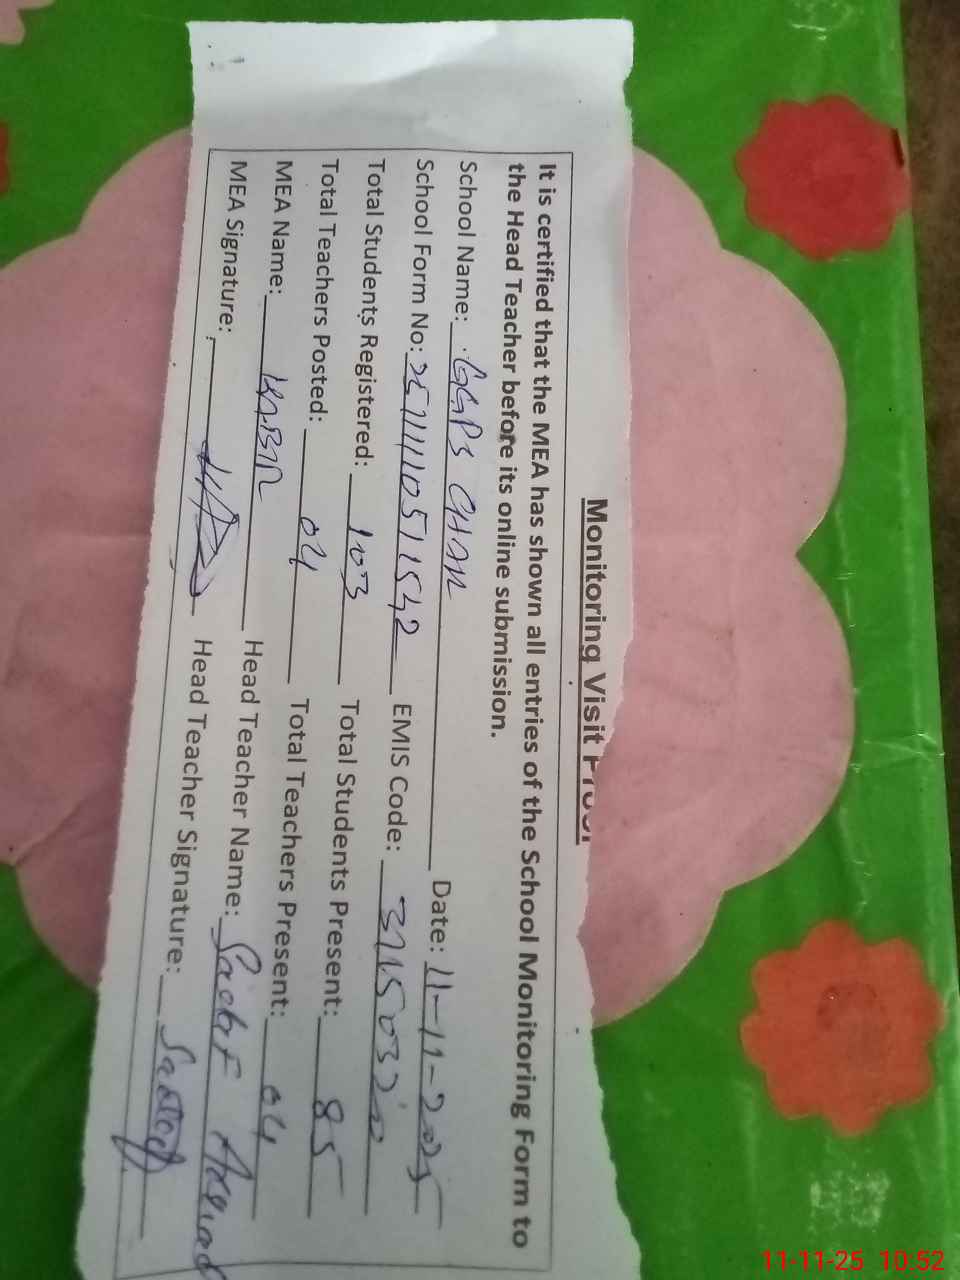 Monitoring Visit Proof
It is certified that the MEA has shown all entries of the School Monitoring Form to
the Head Teacher before its online submission.
School Name: GGPS Date: 11-11-2025
School Form No: EMIS Code:
Total Students Registered: 103 Total Students Present: 85
Total Teachers Posted: 04 Total Teachers Present: 04
MEA Name: Head Teacher Name:
MEA Signature: Head Teacher Signature:
11-11-25 10:52